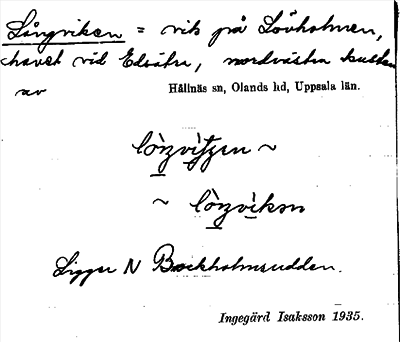 Långviken = vik på Lövholmen,
havet vid Edsätra, nordvästra kusten
av Hållnäs sn, Olands hd, Uppsala län.
lòŋvi̱tʃen ~
~ lòŋvi̱kən
Ligger N Bockholmsudden.
Ingegärd Isaksson 1935.